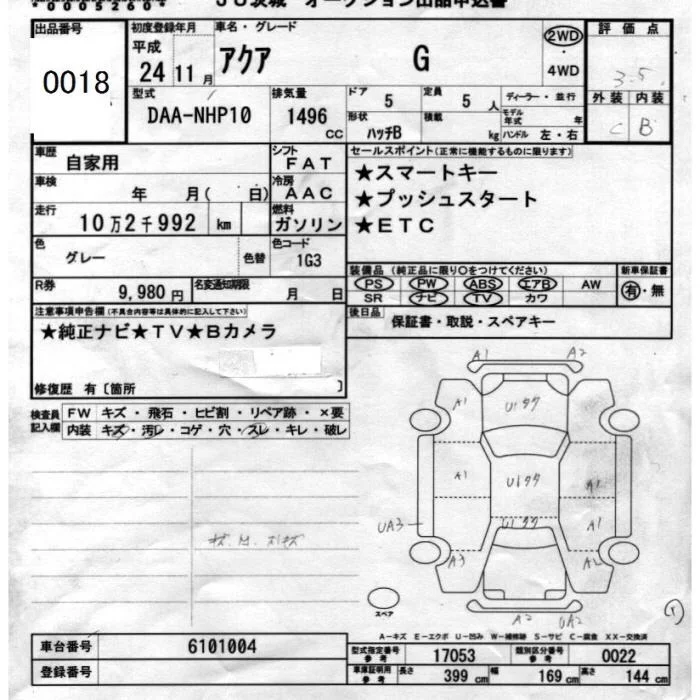 JU茨城 オークション出品申込書
出品番号 0018
初度登録年月 平成 24 11月
車名・グレード アクア G
2WD ・ 4WD
評価点 3.5
外装 内装
C B
型式 DAA-NHP10
排気量 1496 CC
ドア 5 定員 5 人
形状 ハッチB 積載 kg
ディーラー・並行
モデル年式 年
ハンドル 左・右
車歴 自家用
シフト FAT
車検 年 月( 日)
冷房 AAC
走行 10万2千992 km
燃料 ガソリン
色 グレー 色替
色コード 1G3
R券 9,980円
名変通知期限 月 日
セールスポイント(正常に機能するものに限ります)
★スマートキー
★プッシュスタート
★ETC
装備品 (純正品に限り○をつけてください)
PS PW ABS エアB AW
SR ナビ TV カワ
新車保証書
有・無
後日品 保証書・取説・スペアキー
注意事項申告欄 (不具合内容等は具体的に記入して下さい)
★純正ナビ★TV★Bカメラ
修復歴 有〔箇所 〕
検査員記入欄
FW キズ・飛石・ヒビ割・リペア跡・×要
内装 キズ・汚レ・コゲ・穴・スレ・キレ・破レ
A1 A2
A1 U1 タタ A1
A1 U1タタ A1
U1 タタ A1
UA3
A3 A2
A2 UA2
スペア
A-キズ E-エクボ U-凹み W-補修跡 S-サビ C-腐食 XX-交換済
車台番号 6101004
登録番号
型式指定番号 参考 17053
類別区分番号 参考 0022
車庫証明用 参考 長さ 399 cm 幅 169 cm 高さ 144 cm